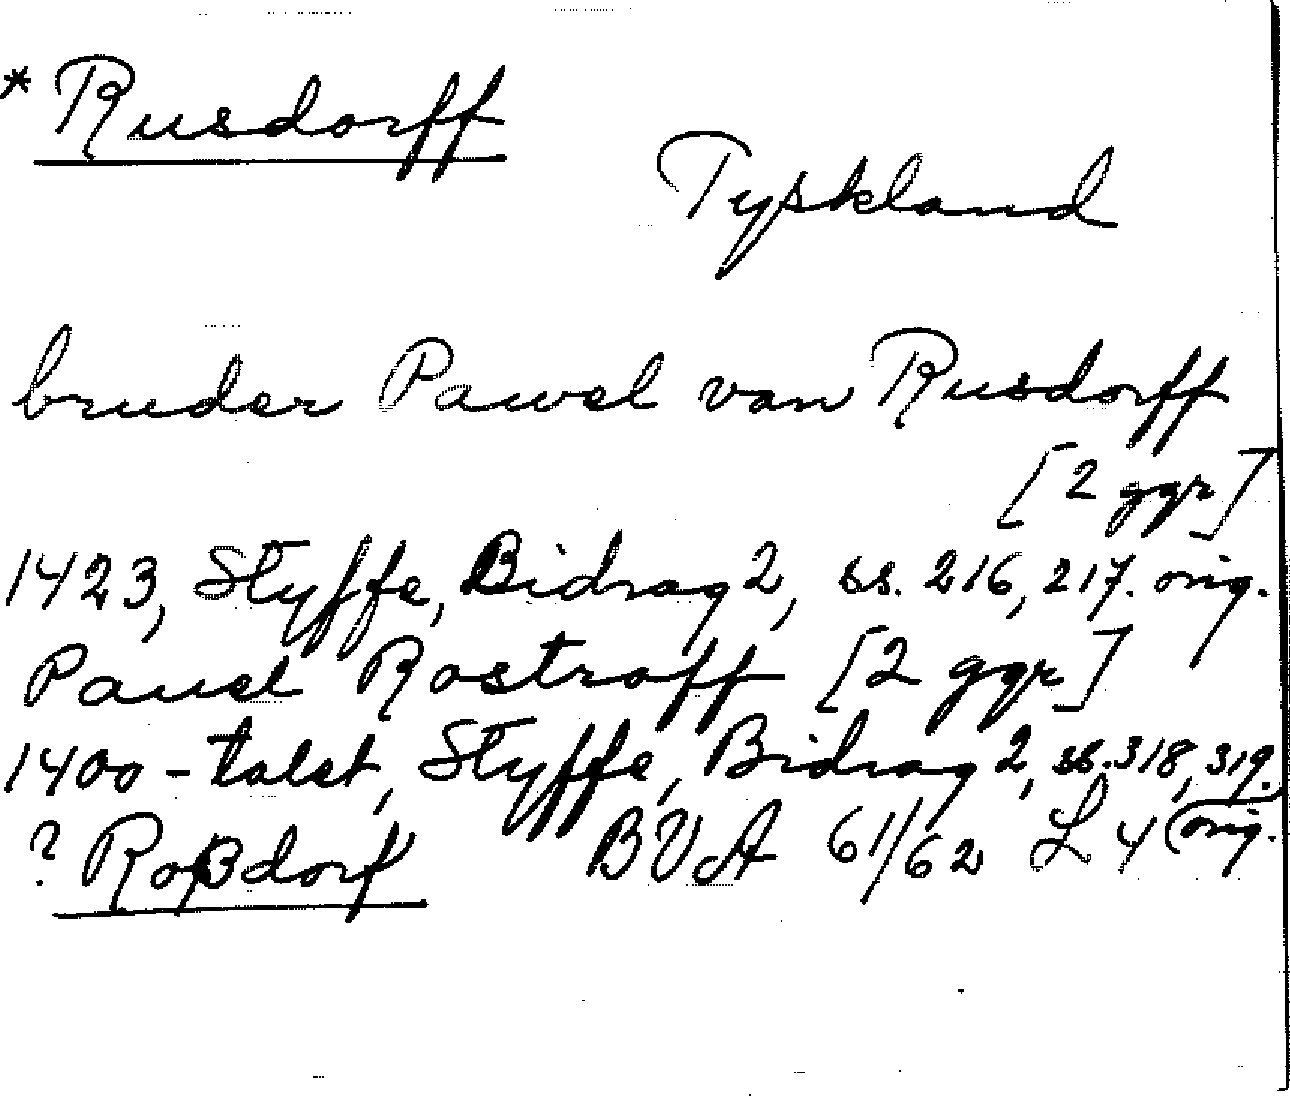 * Rusdorff
Tyskland
bruder Pawel van Rusdorff
[2 ggr]
1423, Styffe, Bidrag 2, ss. 216, 217. orig.
Pauel Rostroff [2 ggr]
1400-talet, Styffe, Bidrag 2, ss. 318, 319.
orig.
? Roßdorf BVA 61/62 L 4